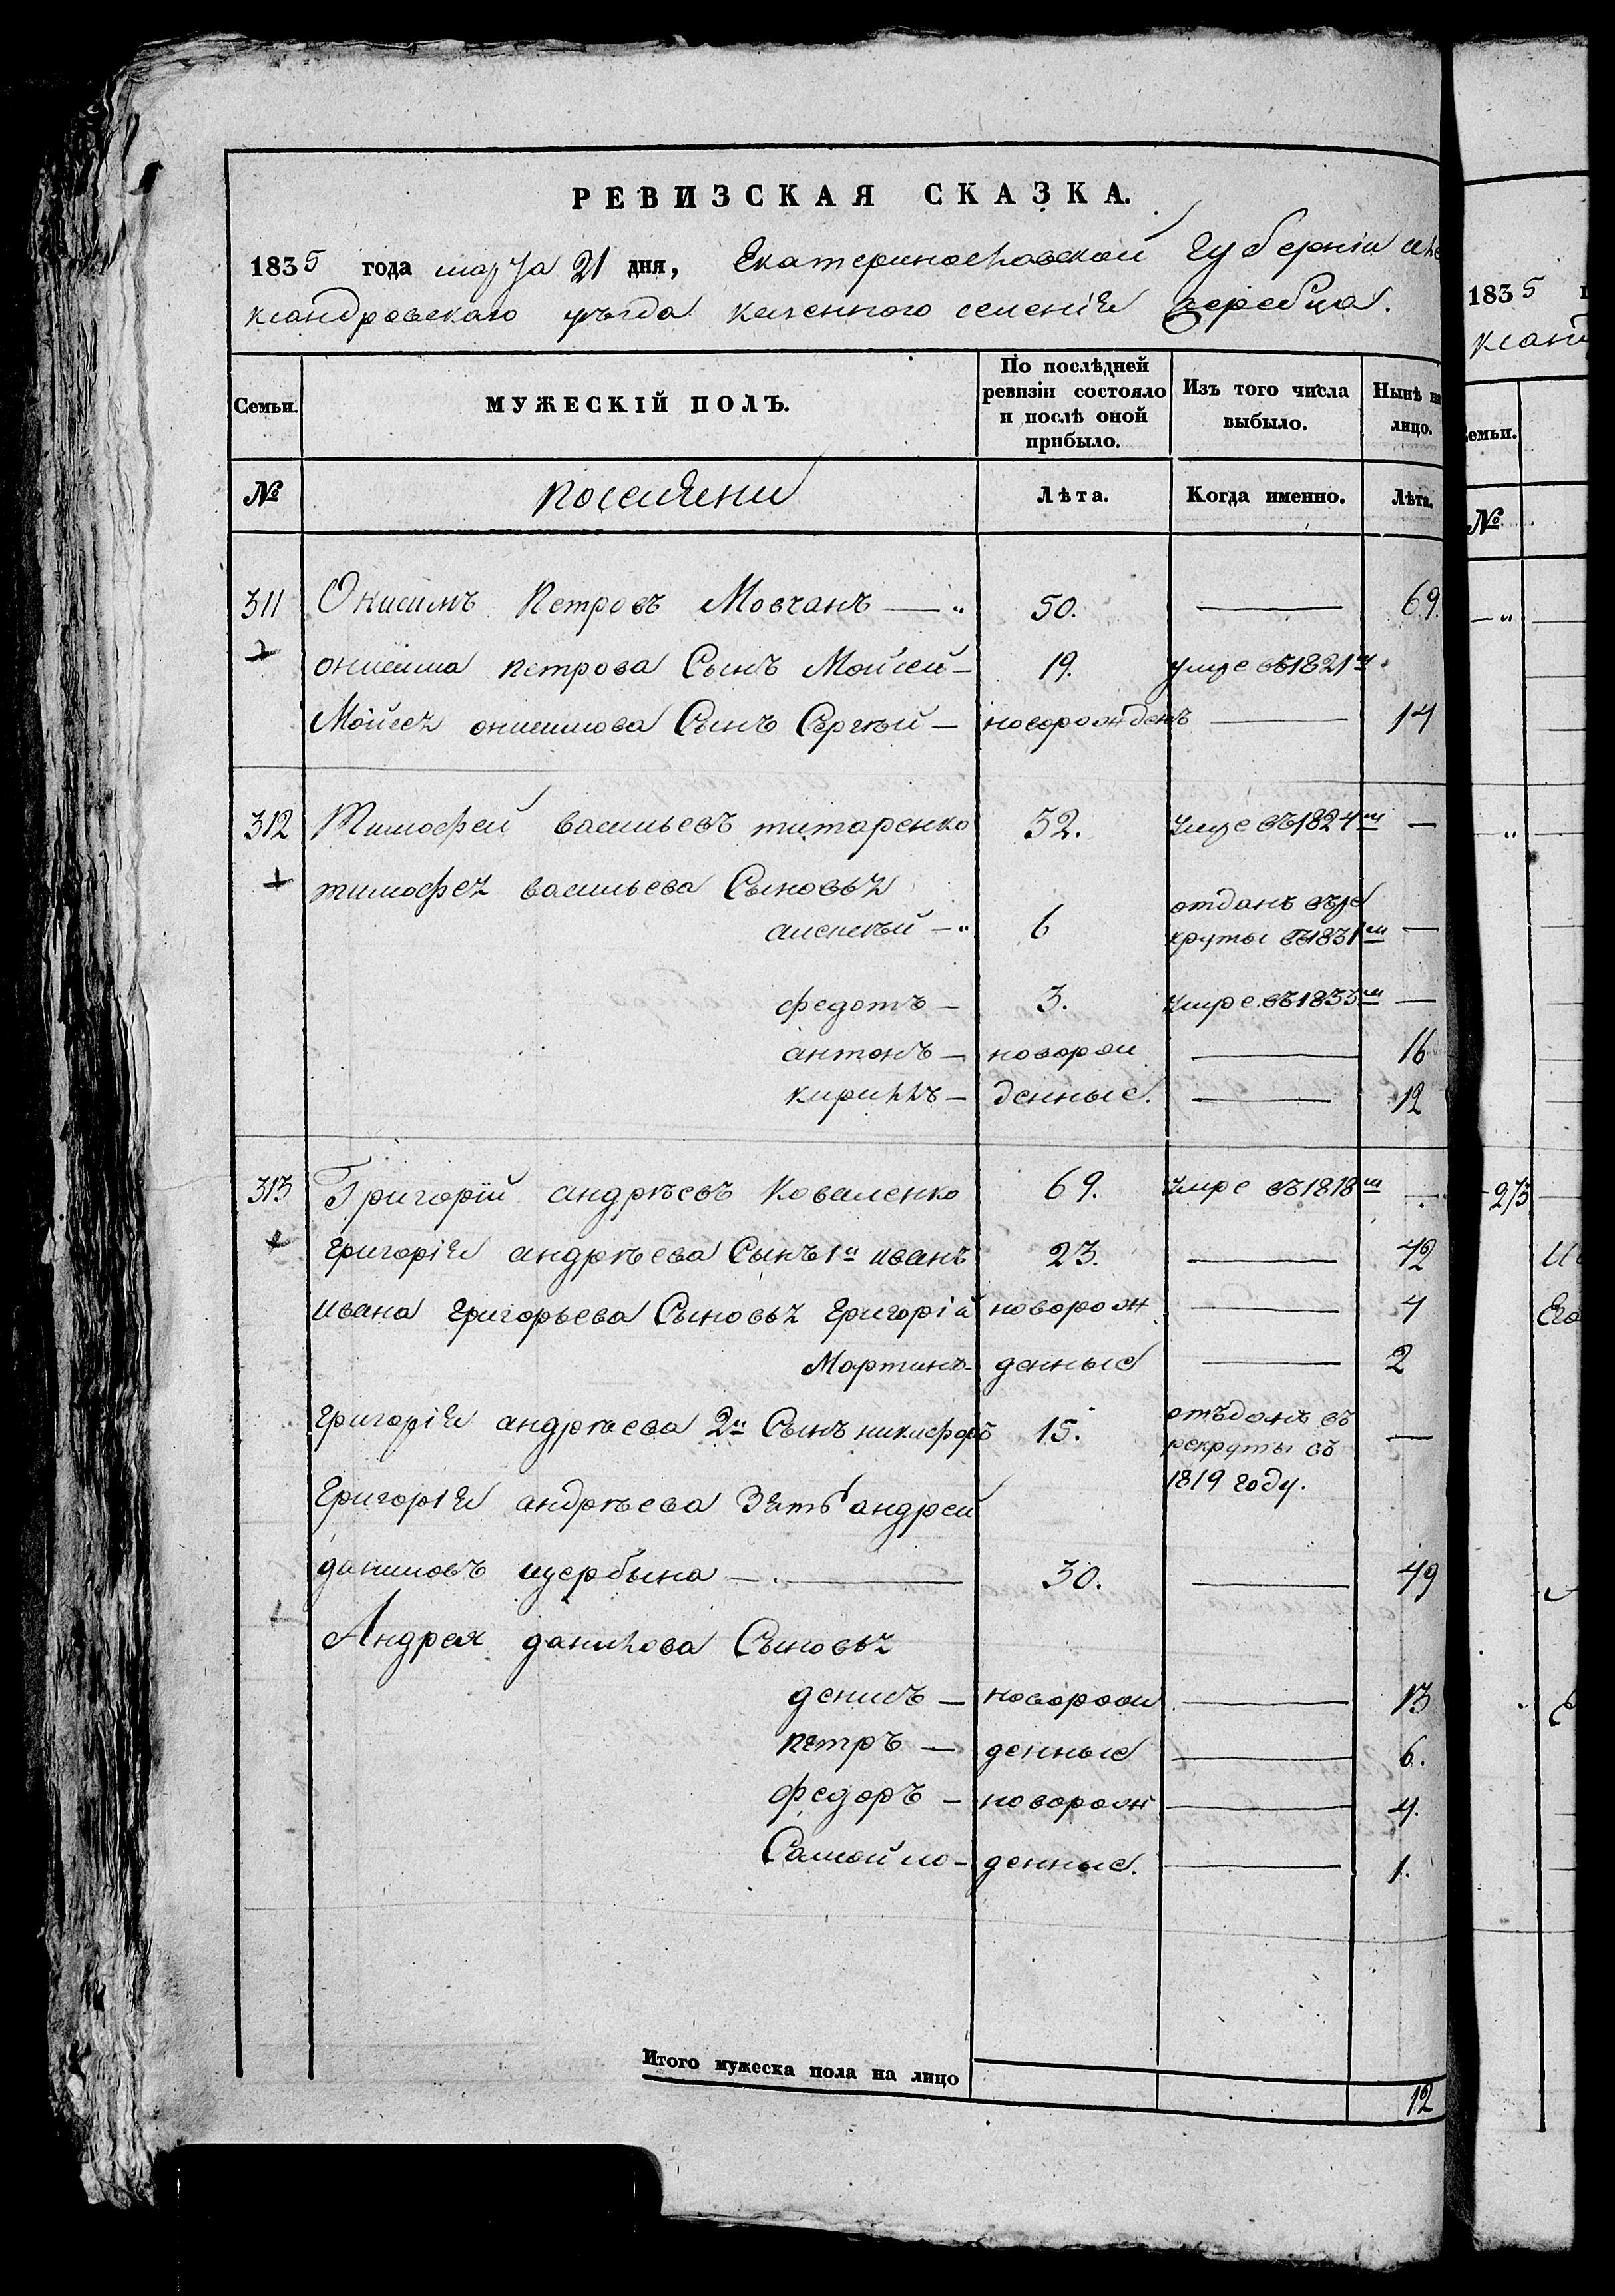 РЕВИЗСКАЯ СКАЗКА.
1835 года марта 21 дня, Екатеринославской Губернии але
ксандровскаго уѣзда казенного селенія жеребца.
Семьи. МУЖЕСКІЙ ПОЛЪ. По послѣдней ревизіи состояло и послѣ оной прибыло. Изъ того числа выбыло. Нынѣ на лицо.
№ поселяни Лѣта. Когда именно. Лѣта.
311 Онисимъ Петровъ Мовчанъ — 50. — 69.
онисима петрова Сынъ Мойсей — 19. умре въ 1821м
Мойсея онисимова Сынъ Сергѣй — новорожденъ — 14
312 Тимофей васильевъ титаренко 52. умре въ 1824м —
тимофея васильева Сыновья
алексѣй — 6 отданъ въ ре
круты въ 1831м —
федотъ — 3. умре въ 1833м —
антонъ — новорож — 16
кирилъ — денные. — 12
313 Григорій андрѣевъ Коваленко 69. умре въ 1818м —
григорія андрѣева Сынъ 1й иванъ 23. — 42
ивана григорьева Сыновья григорій новорож — 4
Мартинъ — денные — 2
григорія андрѣева 2й Сынъ никифоръ 15. отъданъ въ
рекруты въ —
1819 году.
Григорія андрѣева Зять андрей
даниловъ щербына — 30. — 49
Андрея данилова Сыновья
денисъ — новорож — 13
петръ — денные — 6.
федоръ — новорож — 4.
Самойло — денные. — 1.
Итого мужеска пола на лицо 12
1835
ксан
Семьи.
№
273
Его